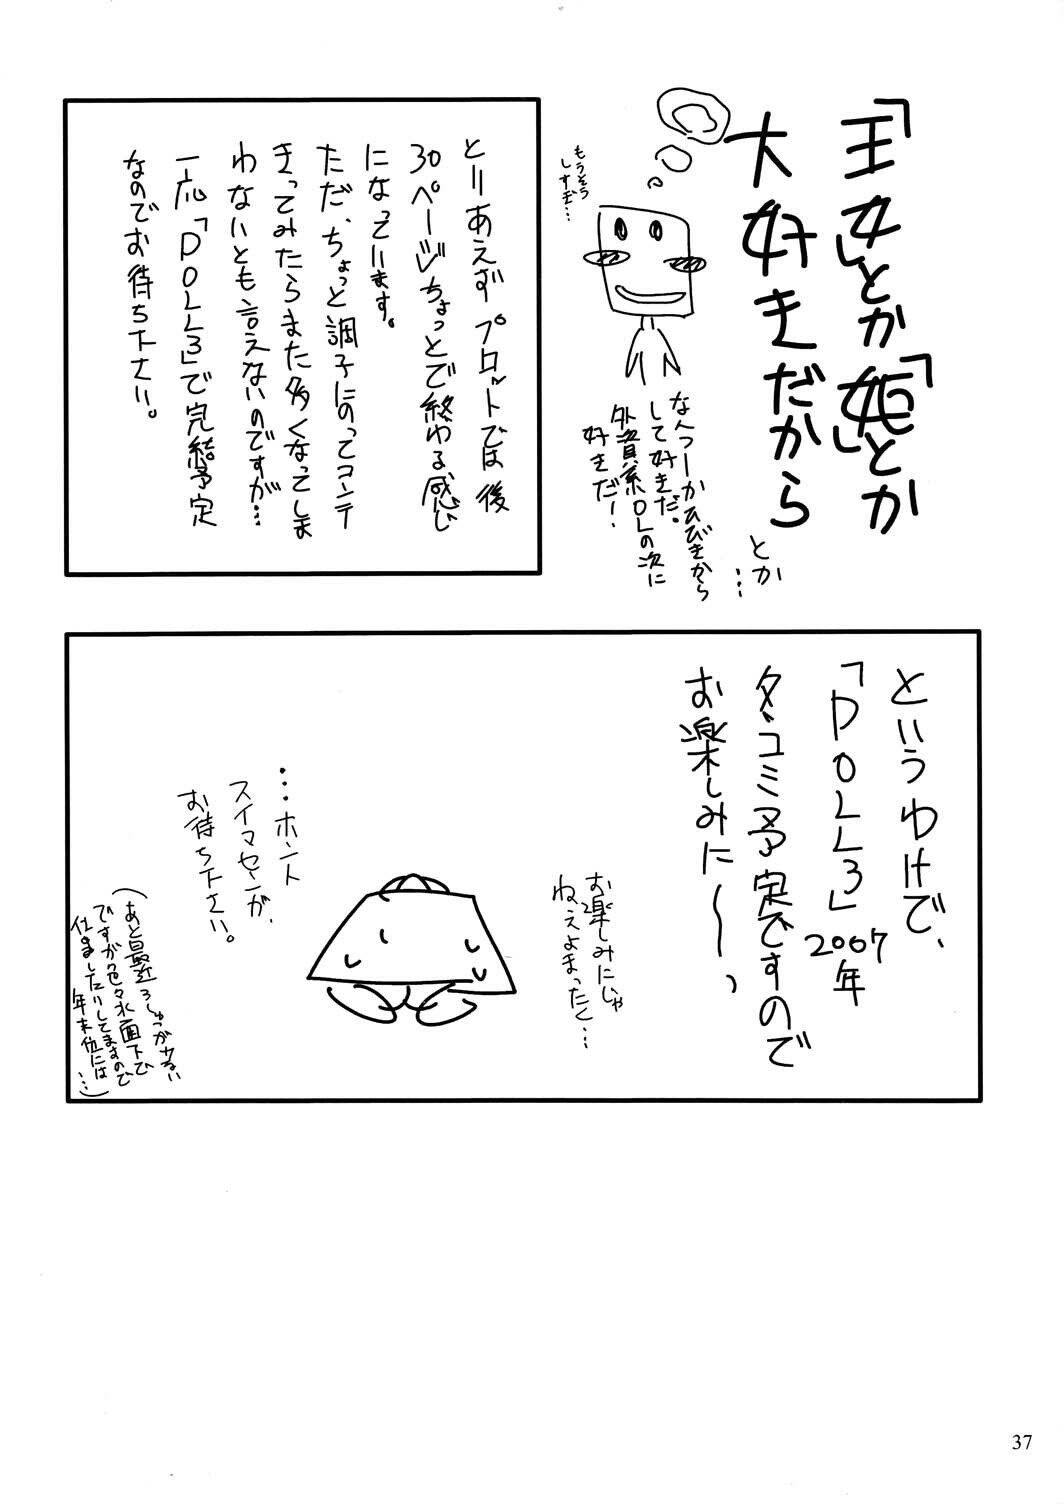 「王女」とか「姫」とか
大好きだから
とか
…
もうそう
しすぎ…
なんつーかひびきから
して好きだ。
外資系OLの次に
好きだー!
とりあえずプロットでは後
30ページちょっとで終わる感じ
になっています。
ただ、ちょっと調子にのってコンテ
きってみたらまた多くなってしま
わないとも言えないのですが…
一応「DOLL3」で完結予定
なのでお待ち下さい。
というわけで、
「DOLL3」2007年
夏コミ予定ですので
お楽しみに〜っ
お楽しみにじゃ
ねえよまったく…
…ホント
スイマセンが、
お待ち下さい。
(あと最近ろしゅつがヤるい
ですが色々水面下で
仕事したりしてますので
年末位には
…)
37